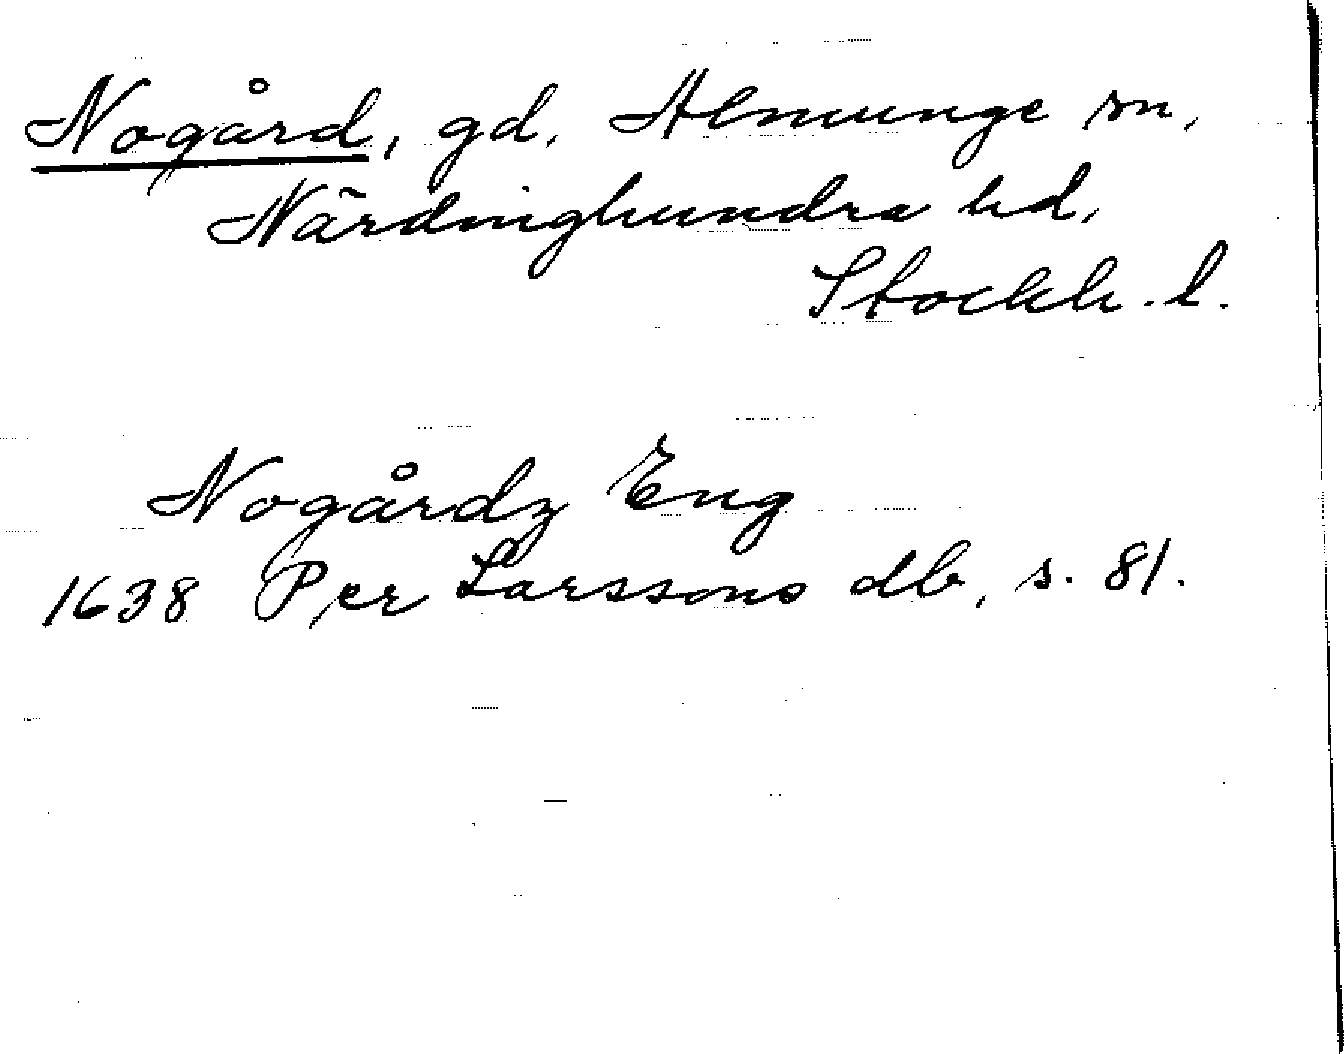 Nogård, gd. Almunge sn,
Närdinghundra hd,
Stockh. l.
Nogårdz Eng
1638 Per Larssons db, s. 81.